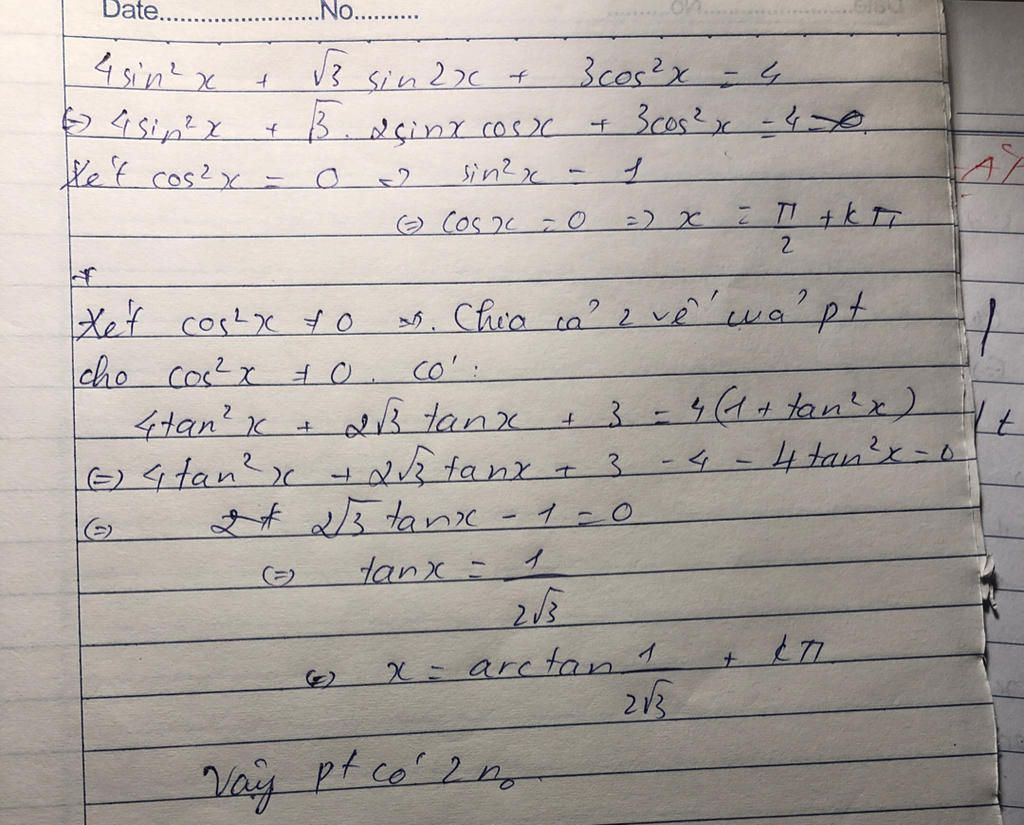 Date.......................No..........
4sin² x + √3 sin 2x + 3cos² x = 4
(=) 4sin² x + √3. 2sinx cosx + 3cos² x = 4
Xét cos² x = 0 => sin² x = 1
(=) cosx = 0 => x = π/2 + kπ
Xét cos² x ≠ 0 . Chia cả 2 vế của pt
cho cos² x ≠ 0. có:
4tan² x + 2√3 tanx + 3 = 4(1 + tan² x)
(=) 4tan² x + 2√3 tanx + 3 - 4 - 4tan² x = 0
(=) 2√3 tanx - 1 = 0
(=) tanx = 1/2√3
(=) x = arctan 1/2√3 + kπ
Vậy pt có 2 no